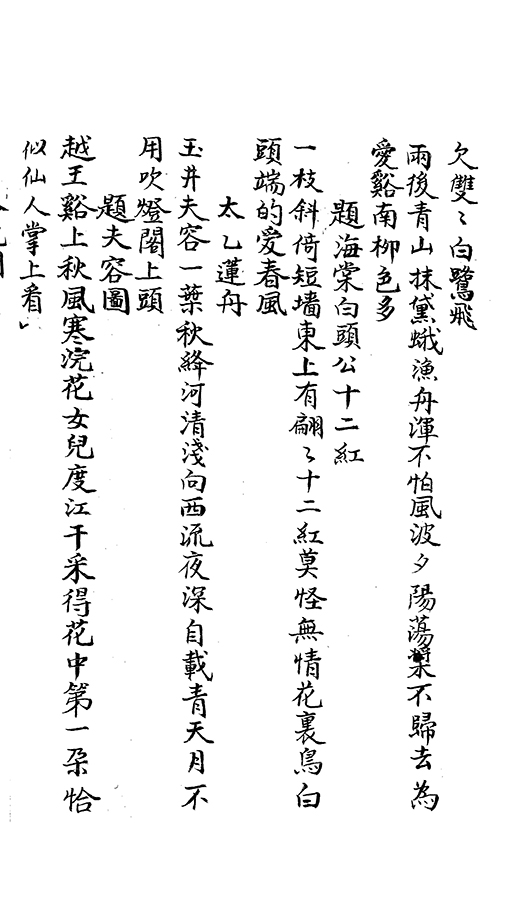 欠雙〻白鷺飛
雨後青山抹黛蛾漁舟渾不怕風波夕陽蕩槳不歸去為
愛谿南柳色多
題海棠白頭公十二紅
一枝斜倚短墻東上有翩〻十二紅莫怪無情花裏鳥白
頭端的愛春風
太乙蓮舟
玉井夫容一葉秋絳河清淺向西流夜深自載青天月不
用吹燈閣上頭
題夫容圖
越王谿上秋風寒浣花女兒度江干采得花中第一朶恰
似仙人掌上看